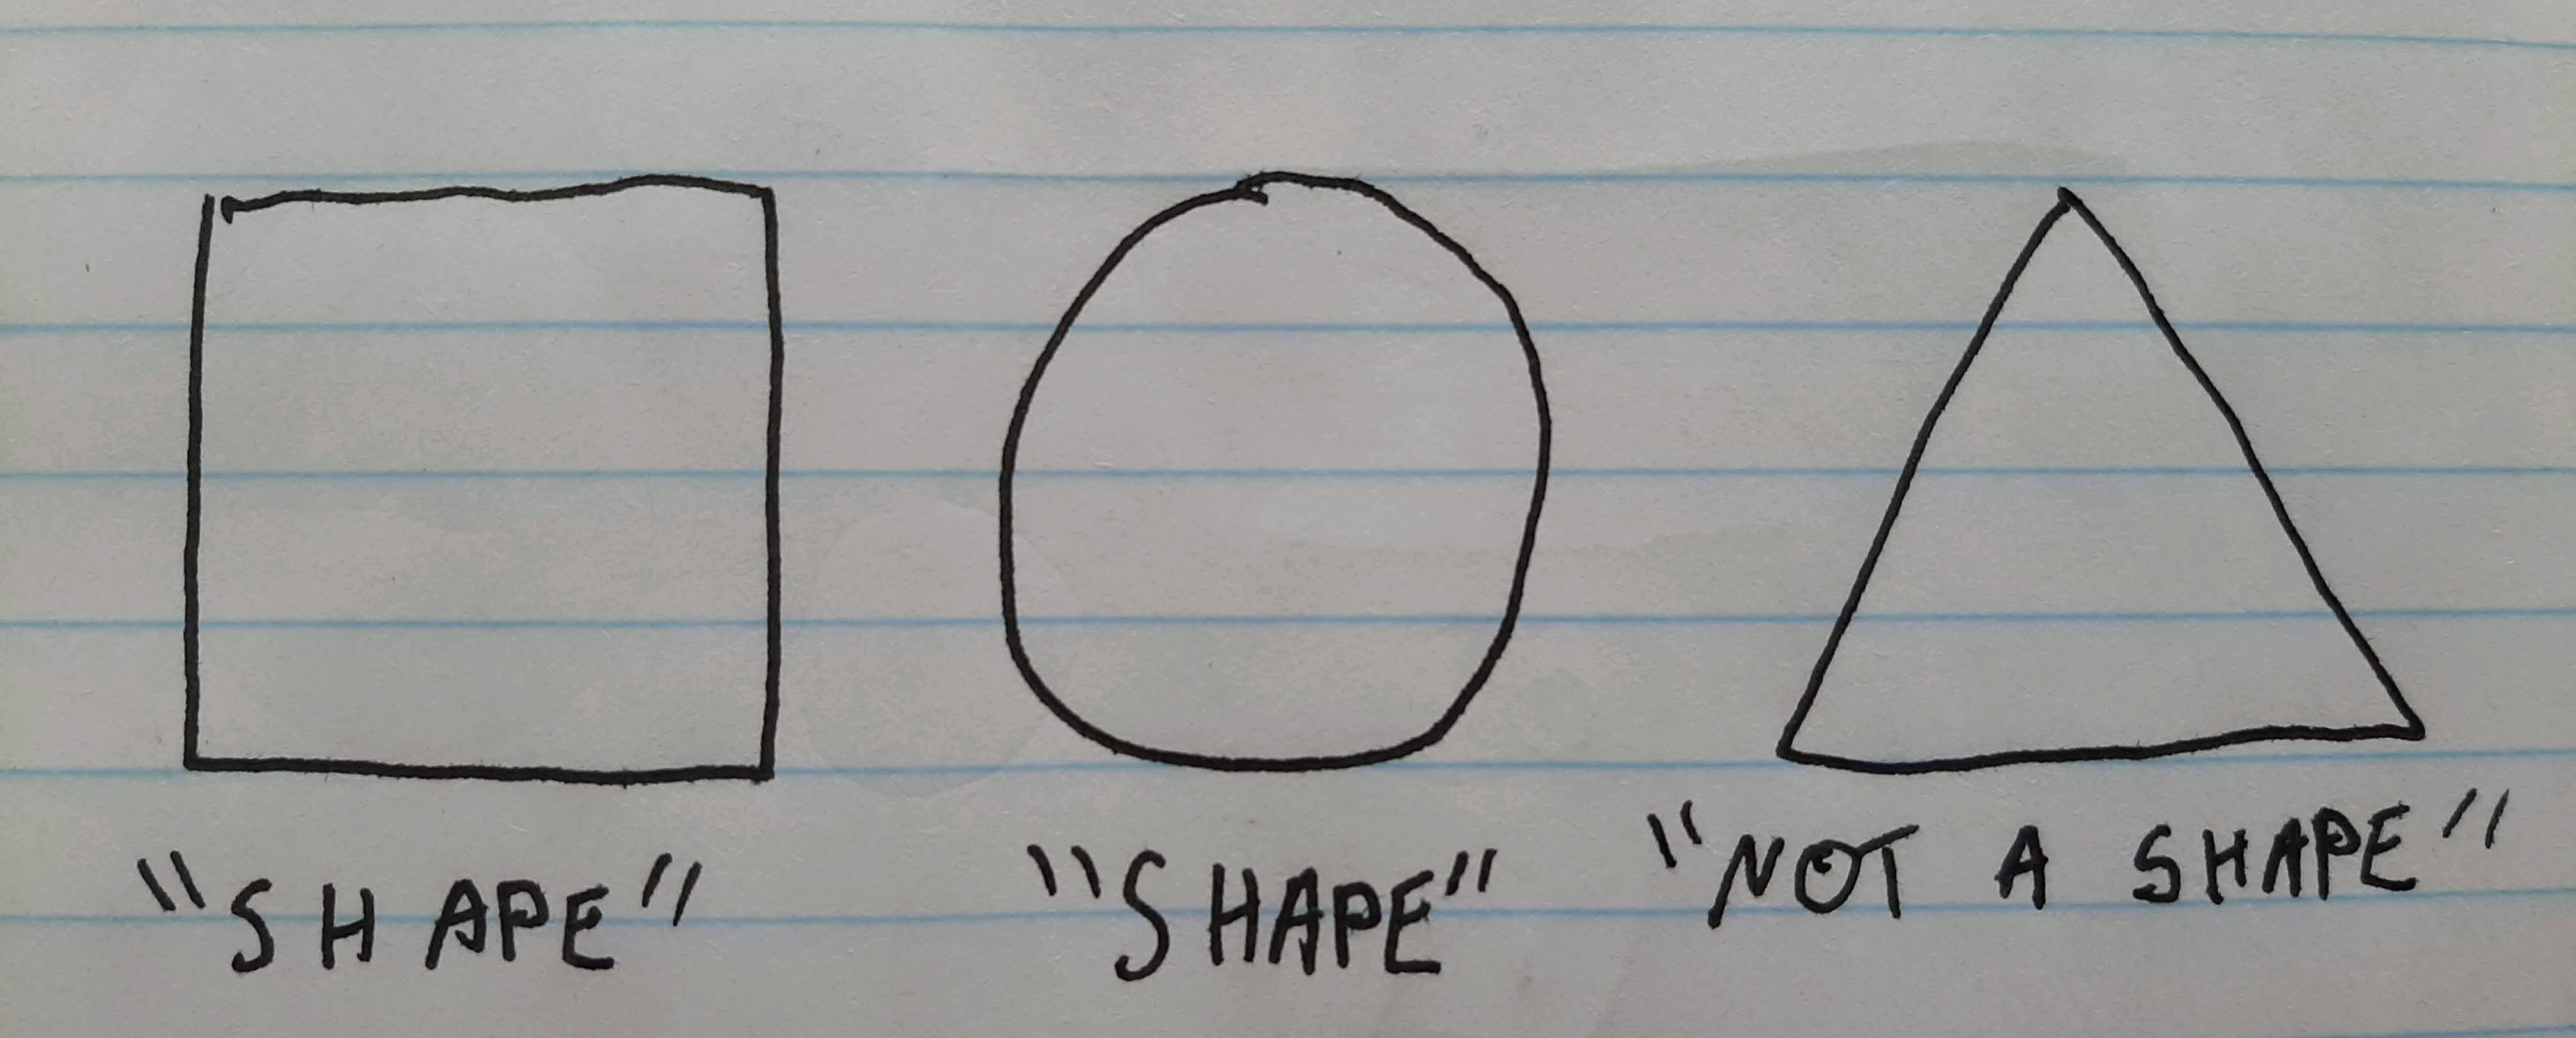 "SHAPE" "SHAPE" "NOT A SHAPE"